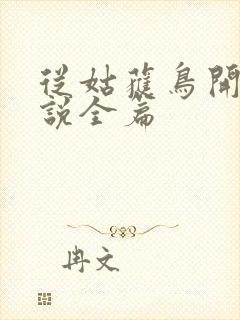 從姑獲鳥開
說全篇
冉文